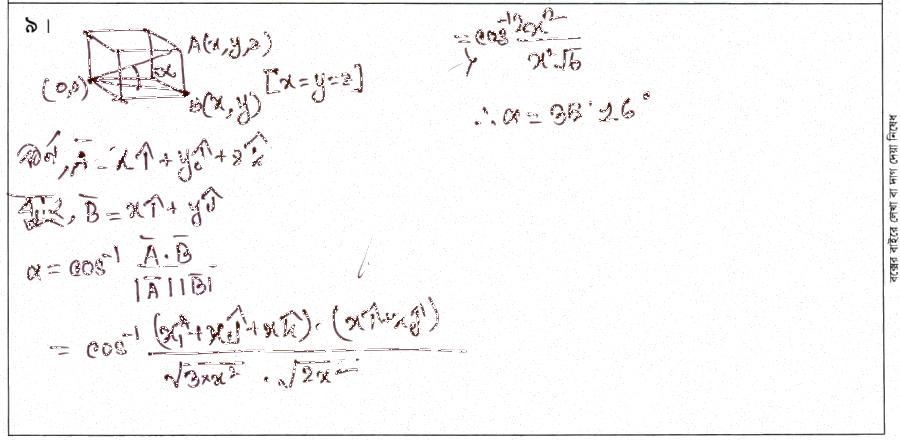 ৯।
A(x,y,z)
α
(0,0)
B(x,y)
[x=y=z]
ধরি, A̅ = xî + yĵ + zk̂
B̅ = xî + yĵ
α = cos⁻¹ A̅·B̅ / |A̅||B̅|
= cos⁻¹ (xî + xĵ + xk̂)·(xî + xĵ) / √3×x² · √2x²
= cos⁻¹ 2x² / x²√6
∴ α = 35·26°
বক্সের বাইরে লেখা বা দাগ দেয়া নিষেধ